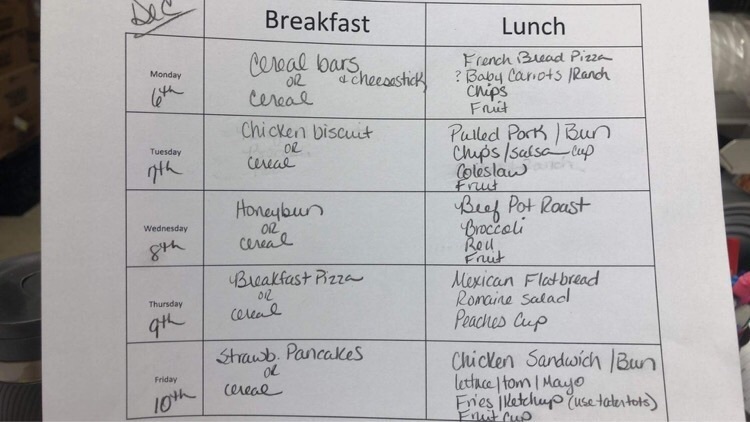 Dec
Breakfast
Lunch
Monday
6th
Cereal bars
OR & cheesestick
Cereal
French Bread Pizza
? Baby Carrots / Ranch
Chips
Fruit
Tuesday
7th
Chicken biscuit
OR
cereal
Pulled Pork / Bun
Chips / salsa cup
Coleslaw
Fruit
Wednesday
8th
Honeybun
OR
cereal
Beef Pot Roast
Broccoli
Roll
Fruit
Thursday
9th
Breakfast Pizza
OR
cereal
Mexican Flatbread
Romaine salad
Peaches Cup
Friday
10th
Strawb. Pancakes
OR
cereal
Chicken Sandwich / Bun
lettuce / tom / Mayo
Fries / Ketchup (use tatertots)
Fruit Cup